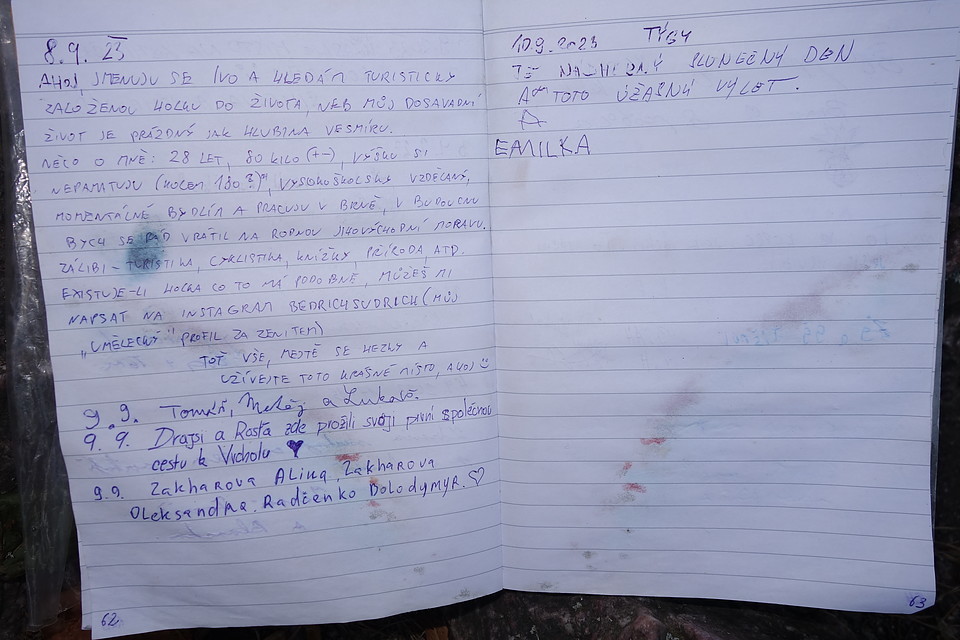 8.9. 23
AHOJ JMENUJU SE IVO A HLEDÁM TURISTICKY
ZALOŽENOU HOLKU DO ŽIVOTA, NEB MŮJ DOSAVADNÍ
ŽIVOT JE PRÁZDNÝ JAK HLUBINA VESMÍRU.
NĚCO O MNĚ: 28 LET, 80 KILO (+-), VÝŠKU SI
NEPAMATUJU (KOLEM 180?), VYSOKOŠKOLSKY VZDĚLANÝ,
MOMENTÁLNĚ BYDLÍM A PRACUJU V BRNĚ, V BUDOUCNU
BYCH SE RÁD VRÁTIL NA RODNOU JIHOVÝCHODNÍ MORAVU.
ZÁLIBI - TURISTIKA, CYKLISTIKA, KNÍŽKY, PŘÍRODA, ATD.
EXISTUJE-LI HOLKA CO TO MÁ PODOBNĚ, MŮŽEŠ MI
NAPSAT NA INSTAGRAM BEDRICHSUDRICH (MŮJ
„UMĚLECKÝ" PROFIL ZA ZENITEM)
TOŤ VŠE, MĚJTĚ SE HEZKY A
UŽÍVEJTE TOTO KRÁSNÉ MÍSTO, AHOJ
9.9. Tomáš, Matěj a Lukáš.
9.9. Drajsi a Rosťa zde prožili svoji první společnou
cestu k Vrcholu ♥
9.9. Zakharova Alina, Zakharova
Oleksandra. Radčenko Volodymyr. ♡
62
10.9.2023
DEN
TOTO ÚŽASNÝ VÝLET.
A
EMILKA
63